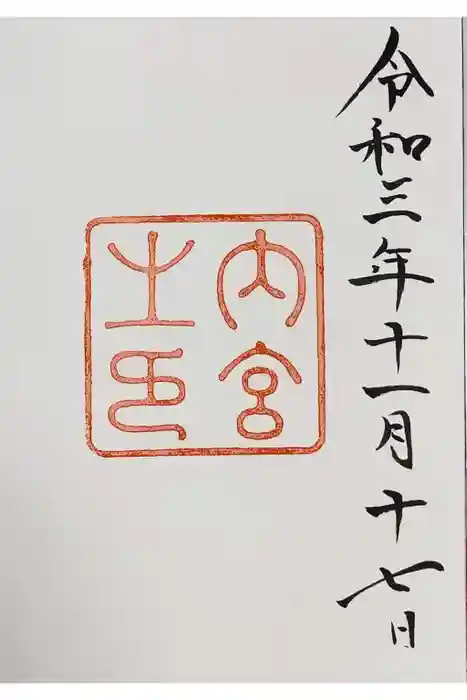 令和三年十一月十七日
内宮
之印